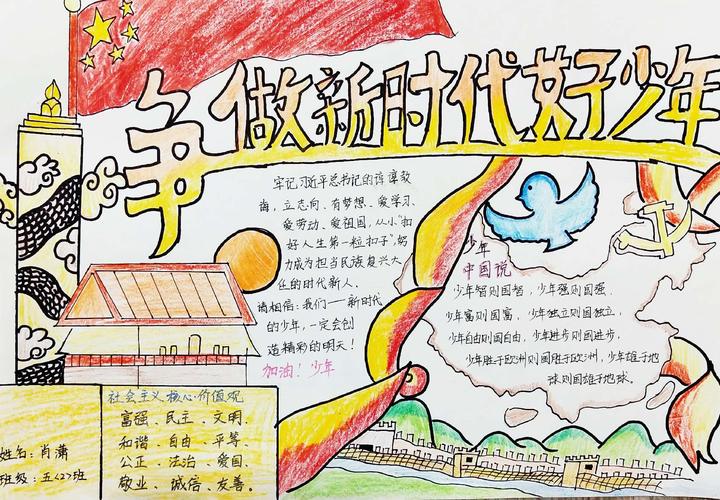 争做新时代好少年
牢记习近平总书记的谆谆教
诲，立志向、有梦想、爱学习、
爱劳动、爱祖国，从小“扣
好人生第一粒扣子”，努
力成为担当民族复兴大
任的时代新人。
请相信：我们一新时代
的少年，一定会创
造精彩的明天！
加油！少年
少年
中国说
少年智则国智，少年强则国强，
少年富则国富，少年独立则国独立，
少年自由则国自由，少年进步则国进步，
少年胜于欧洲则国胜于欧洲，少年雄于地
球则国雄于地球。
社会主义核心价值观
富强、民主、文明、
和谐、自由、平等、
公正、法治、爱国、
敬业、诚信、友善。
姓名：肖潇
班级：五<2>班